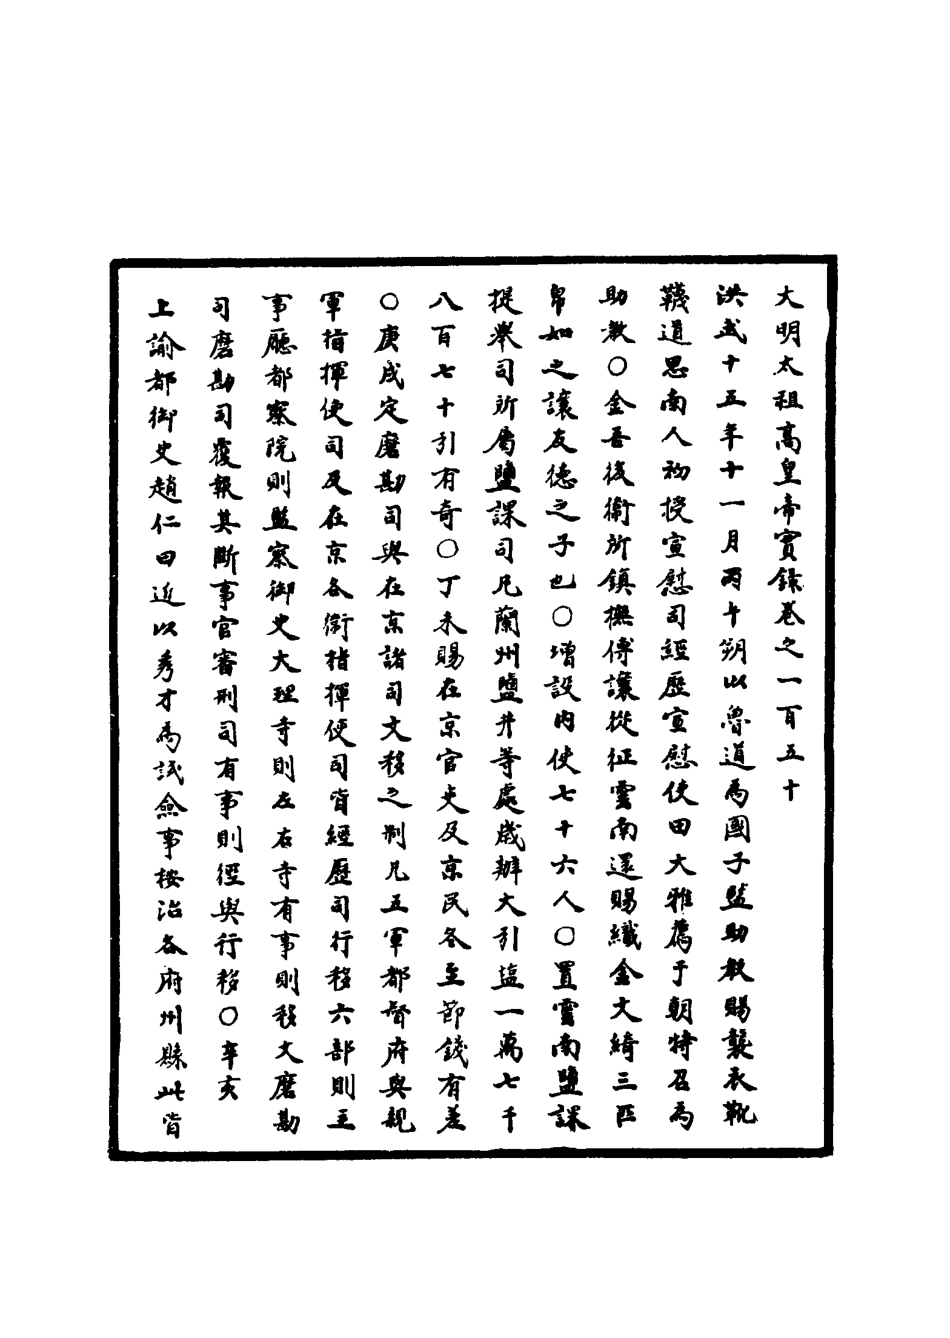 大明太祖高皇帝實錄卷之一百五十
洪武十五年十一月丙午朔以魯道為國子監助教賜襲衣靴
韈道思南人初授宣慰司經歷宣慰使田大雅薦于朝特召為
助教○金吾後衛所鎮撫傅讓從征雲南還賜織金文綺三匹
帛如之讓友德之子也○增設內使七十六人○置雲南鹽課
提舉司所屬鹽課司凡蘭州鹽井等處歲辦大引塩一萬七千
八百七十引有奇○丁未賜在京官吏及京民冬至節錢有差
○庚戌定磨勘司與在京諸司文移之制凡五軍都督府與親
軍指揮使司及在京各衛指揮使司皆經歷司行移六部則主
事廳都察院則監察御史大理寺則左右寺有事則移文磨勘
司磨勘司覆報其斷事官審刑司有事則徑與行移○辛亥
上諭都御史趙仁曰近以秀才為試僉事按治各府州縣此皆